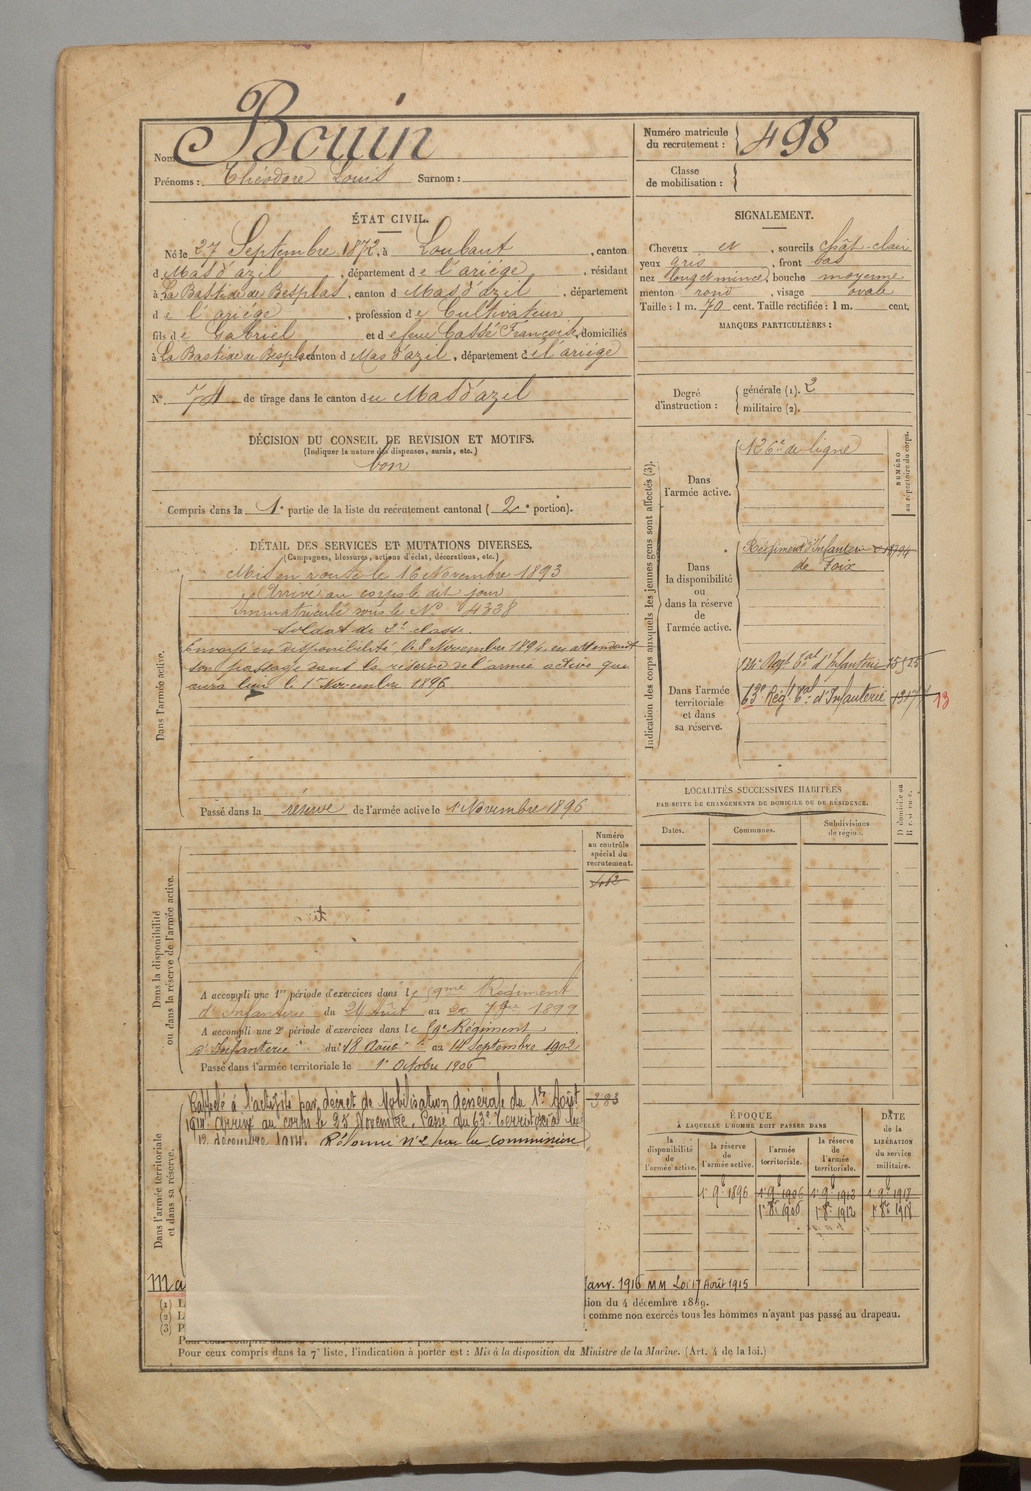 Nom Bouin
Prénoms : Théodore Louis Surnom :
Numéro matricule du recrutement : 498
Classe de mobilisation :
ÉTAT CIVIL.
Né le 27 Septembre 1872, à Loubaut, canton
d Mas d'azil, département de l'ariège, résidant
à La Bastide de Besplas, canton d Mas d'azil, département
d e l'ariége, profession de Cultivateur
fils de Gabriel et de feue Cassé Françoise, domiciliés
à La Bastide de Besplas canton d Mas d'azil, département de l'ariége
N°. 74 de tirage dans le canton du Mas d'azil
DÉCISION DU CONSEIL DE REVISION ET MOTIFS.
(Indiquer la nature des dispenses, sursis, etc.)
bon
Compris dans la 1e partie de la liste du recrutement cantonal (2e portion).
DÉTAIL DES SERVICES ET MUTATIONS DIVERSES.
(Campagnes, blessures, actions d'éclat, décorations, etc.)
Dans l'armée active.
Mis en route le 16 Novembre 1893
Arrivé au corps le dit jour
Immatriculé sous le N° 4338
Soldat de 2e classe.
Envoyé en disponibilité le 8 Novembre 1894 en attendant
son passage dans la réserve de l'armée active qui
aura lieu le 1er Novembre 1896
Passé dans la réserve de l'armée active le 1 Novembre 1896
Numéro au contrôle spécial du recrutement.
Dans la disponibilité ou dans la réserve de l'armée active.
A accompli une 1re période d'exercices dans le 59me Régiment
d'Infanterie du 24 Août au 20 7bre 1899
A accompli une 2e période d'exercices dans le 59e Régiment
d'Infanterie du 18 Août au 14 Septembre 1902
Passé dans l'armée territoriale le 1er Octobre 1906
Dans l'armée territoriale et dans sa réserve.
Rappelé à l'activité par décret de Mobilisation Générale du 1er Août
1914. Arrivé au corps le 25 Novembre. Passé du 63e Territorial le
12 décembre 1914. Réformé n°2 par la commission
393
Ma
anv. 1916 MM Loi 17 Août 1915
(1) L
tion du 4 décembre 1889.
(2) L
comme non exercés tous les hommes n'ayant pas passé au drapeau.
(3) P
Pour ceux compris dans la 7e liste, l'indication à porter est : Mis à la disposition du Ministre de la Marine. (Art. 4 de la loi.)
SIGNALEMENT.
Cheveux et, sourcils chât-clair
yeux gris, front bas
nez long et mince, bouche moyenne
menton rond, visage ovale
Taille : 1 m. 70 cent. Taille rectifiée : 1 m. cent.
MARQUES PARTICULIÈRES :
Degré d'instruction :
générale (1). 2
militaire (2).
Indication des corps auxquels les jeunes gens sont affectés (3).
NUMÉRO au répertoire du corps.
Dans l'armée active.
126e de ligne
Dans la disponibilité ou dans la réserve de l'armée active.
Régiment d'Infanterie
de Foix
Dans l'armée territoriale et dans sa réserve.
Regt tal d'Infanterie
63e Régt tal d'Infanterie 13
LOCALITÉS SUCCESSIVES HABITÉES
PAR SUITE DE CHANGEMENTS DE DOMICILE OU DE RÉSIDENCE.
Dates.
Communes.
Subdivisions de région.
D domicile ou R résidence.
ÉPOQUE
À LAQUELLE L'HOMME DOIT PASSER DANS
la disponibilité de l'armée active.
la réserve de l'armée active.
l'armée territoriale.
la réserve de l'armée territoriale.
DATE de la LIBÉRATION du service militaire.
1er 9bre 1896 1er 9bre 1906 1er 9bre 1912 1er 9bre 1918
1er 8bre 1906 1er 8bre 1912 1er 8bre 1918